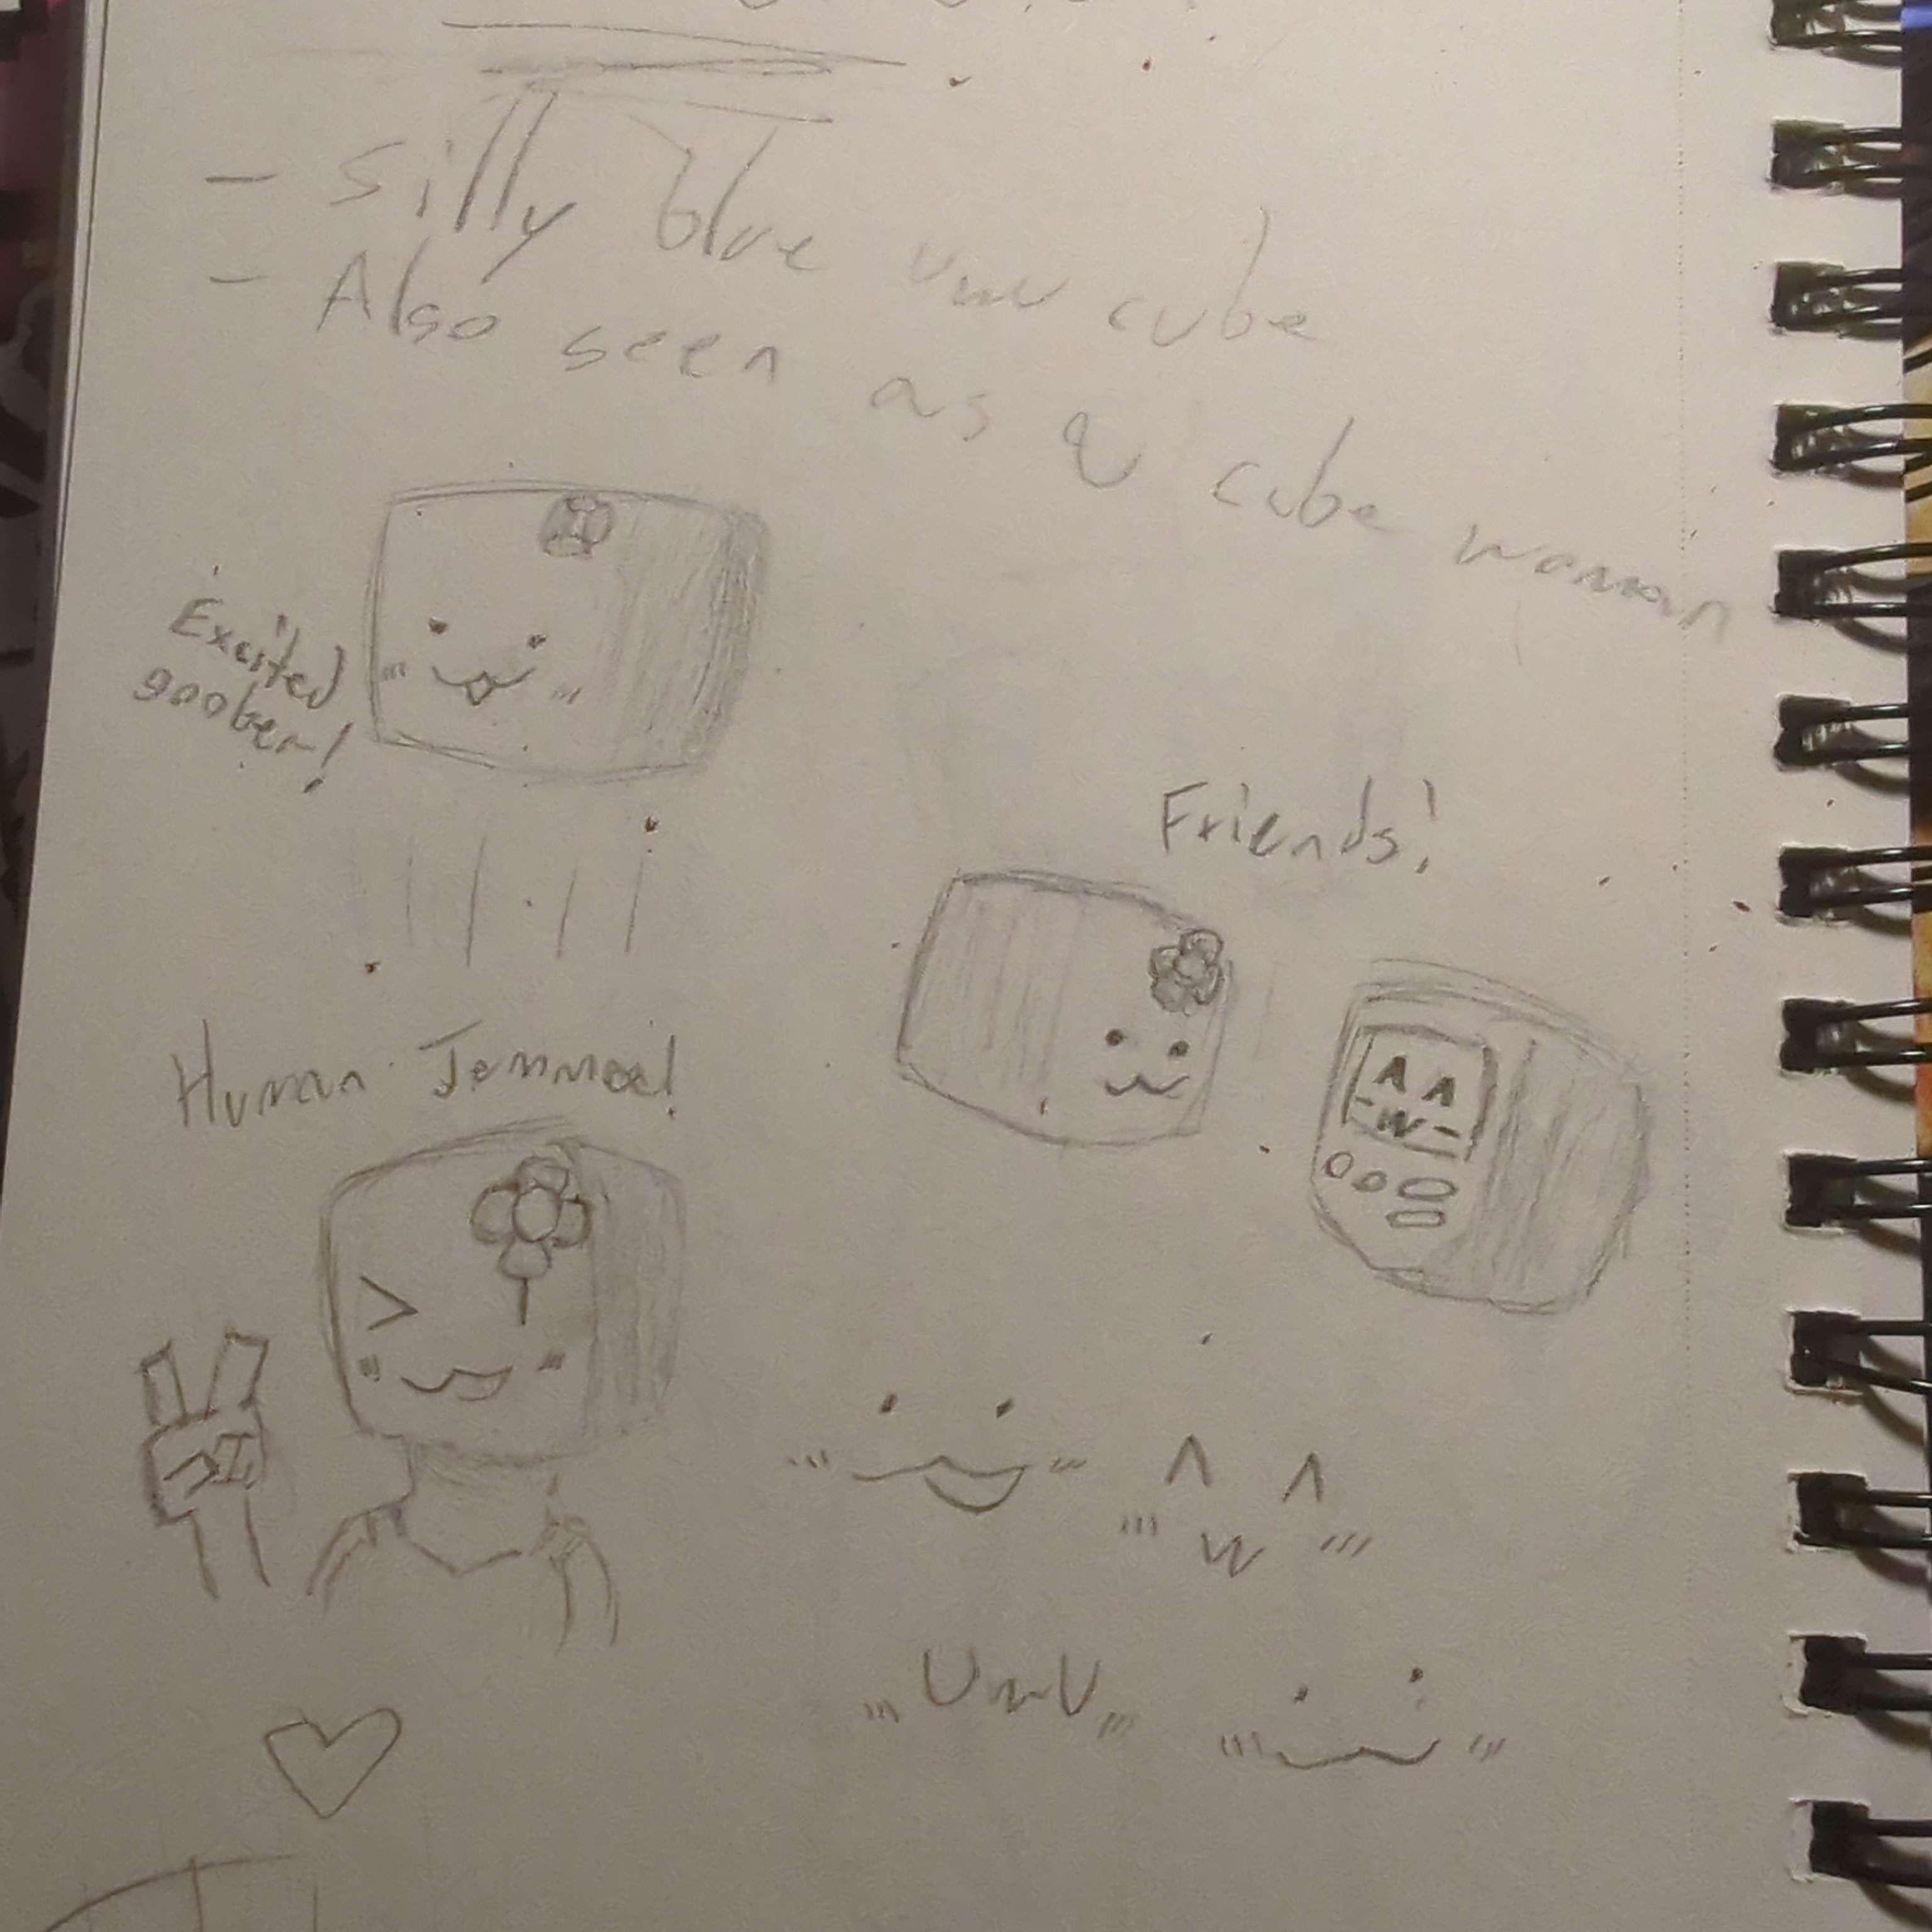 - Silly blue UwU cube
- Also seen as a cube woman
Excited
goober!
Friends!
Human Jemmoe!
^ ^
w
UwU